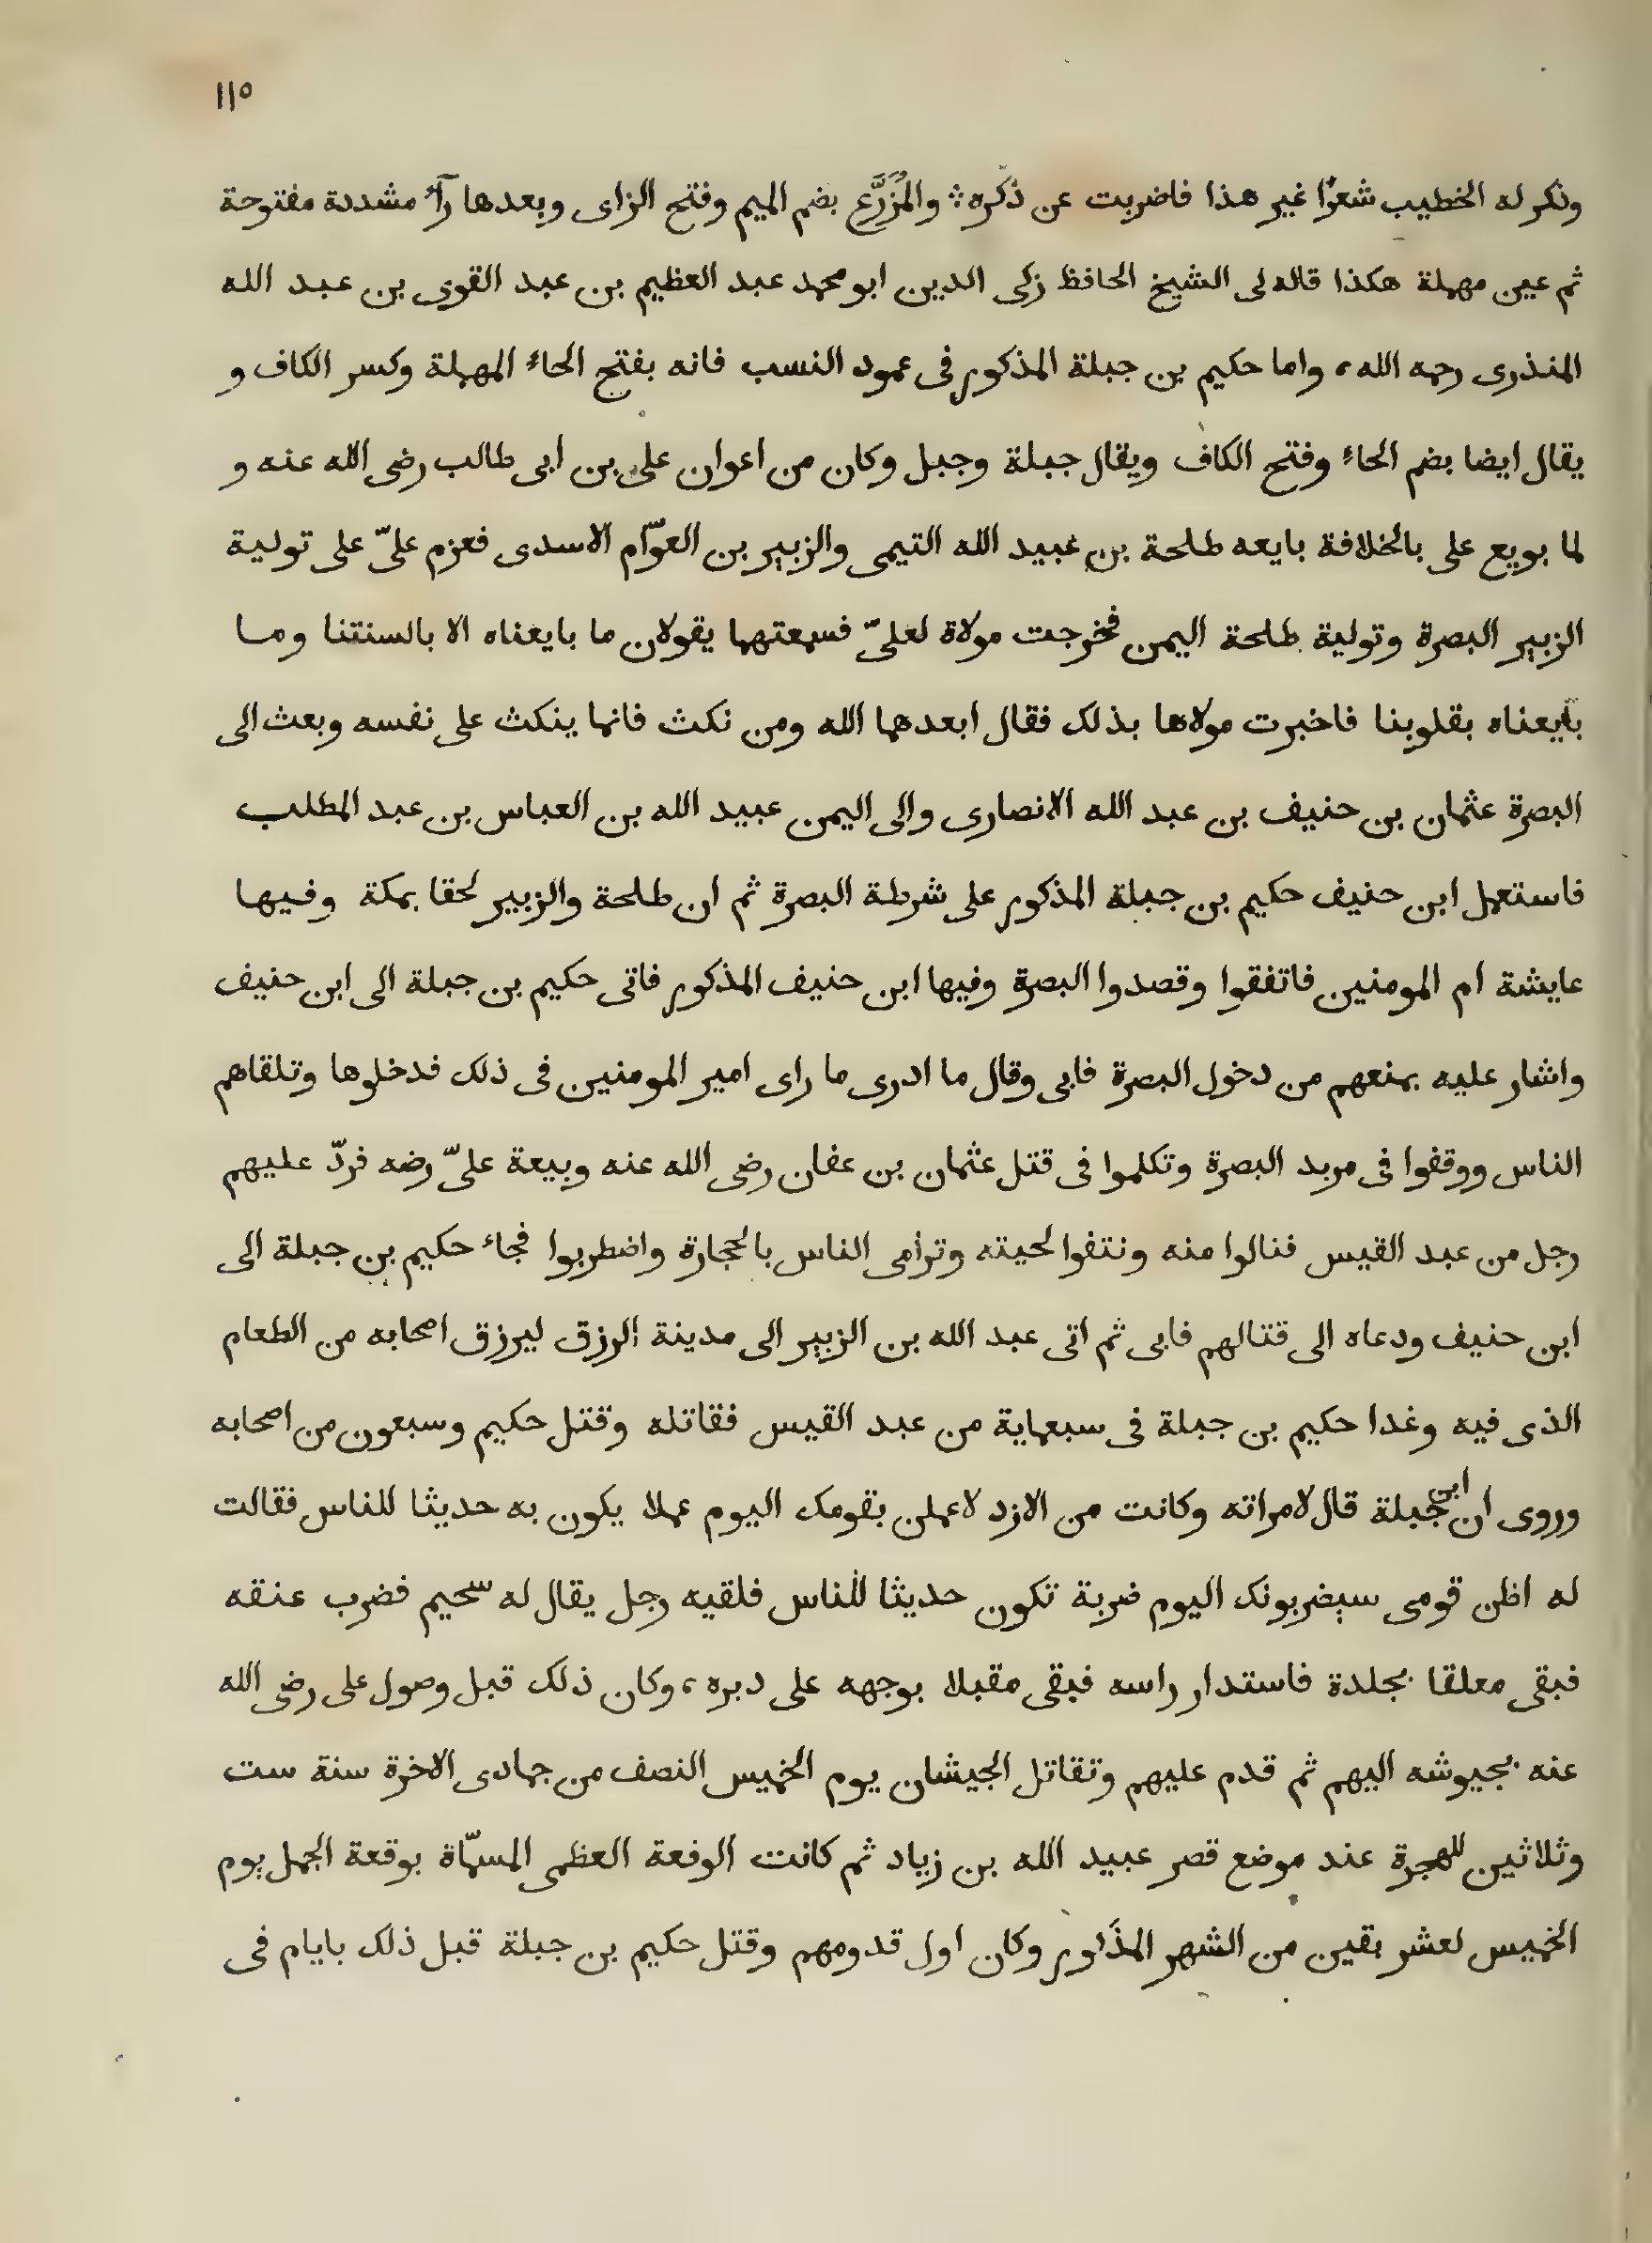 ١١٥
وذكر له الخطيب شعرًا غير هذا فاضربت عن ذكره ÷ والمُزَرَّع بضم الميم وفتح الزاى وبعدها رآء مشددة مفتوحة
ثم عين مهملة هكذا قاله لى الشيخ الحافظ زكى الدين ابو محمد عبد العظيم بن عبد القوى بن عبد الله
المنذرى رحمه الله، واما حكيم بن جبلة المذكور فى عمود النسب فانه بفتح الحاء المهملة وكسر الكاف و
يقال ايضا بضم الحاء وفتح الكاف ويقال جبلة وجبل وكان من اعوان على بن ابى طالب رضى الله عنه و
لما بويع على بالخلافة بايعه طلحة بن عبيد الله التيمى والزبير بن العوّام الاسدى فعزم علىّ على تولية
الزبير البصرة وتولية طلحة اليمن فخرجت مولاة لعلىّ فسمعتهما يقولان ما بايعناه الا بالسنتنا وما
بايعناه بقلوبنا فاخبرت مولاها بذلك فقال ابعدهما الله ومن نكث فانما ينكث على نفسه وبعث الى
البصرة عثمان بن حنيف بن عبد الله الانصارى والى اليمن عبيد الله بن العباس بن عبد المطلب
فاستعمل ابن حنيف حكيم بن جبلة المذكور على شرطة البصرة ثم ان طلحة والزبير لحقا بمكة وفيها
عايشة ام المومنين فاتفقوا وقصدوا البصرة وفيها ابن حنيف المذكور فاتى حكيم بن جبلة الى ابن حنيف
واشار عليه بمنعهم من دخول البصرة فابى وقال ما ادرى ما راى امير المومنين فى ذلك فدخلوها وتلقاهم
الناس ووقفوا فى مربد البصرة وتكلموا فى قتل عثمان بن عفان رضى الله عنه وبيعة علىّ رضه فردّ عليهم
رجل من عبد القيس فنالوا منه ونتفوا لحيته وترامى الناس بالحجارة واضطربوا فجاء حكيم بن جبلة الى
ابن حنيف ودعاه الى قتالهم فابى ثم اتى عبد الله بن الزبير الى مدينة الرزق ليرزق اصحابه من الطعام
الذى فيه وغدا حكيم بن جبلة فى سبعماية من عبد القيس فقاتله وقتل حكيم وسبعون من اصحابه
وروى ان ابن جبلة قال لامراته وكانت من الازد لاعملن بقومك اليوم عملا يكون به حديثا للناس فقالت
له اظن قومى سيضربونك اليوم ضربة تكون حديثا للناس فلقيه رجل يقال له سحيم فضرب عنقه
فبقى معلقا بجلدة فاستدار راسه فبقى مقبلا بوجهه على دبره، وكان ذلك قبل وصول على رضى الله
عنه بجيوشه اليهم ثم قدم عليهم وتقاتل الجيشان يوم الخميس النصف من جمادى الاخرة سنة ست
وثلاثين للهجرة عند موضع قصر عبيد الله بن زياد ثم كانت الوقعة العظمى المسمّاة بوقعة الجمل يوم
الخميس لعشر بقين من الشهر المذكور وكان اول قدومهم وقتل حكيم بن جبلة قبل ذلك بايام فى